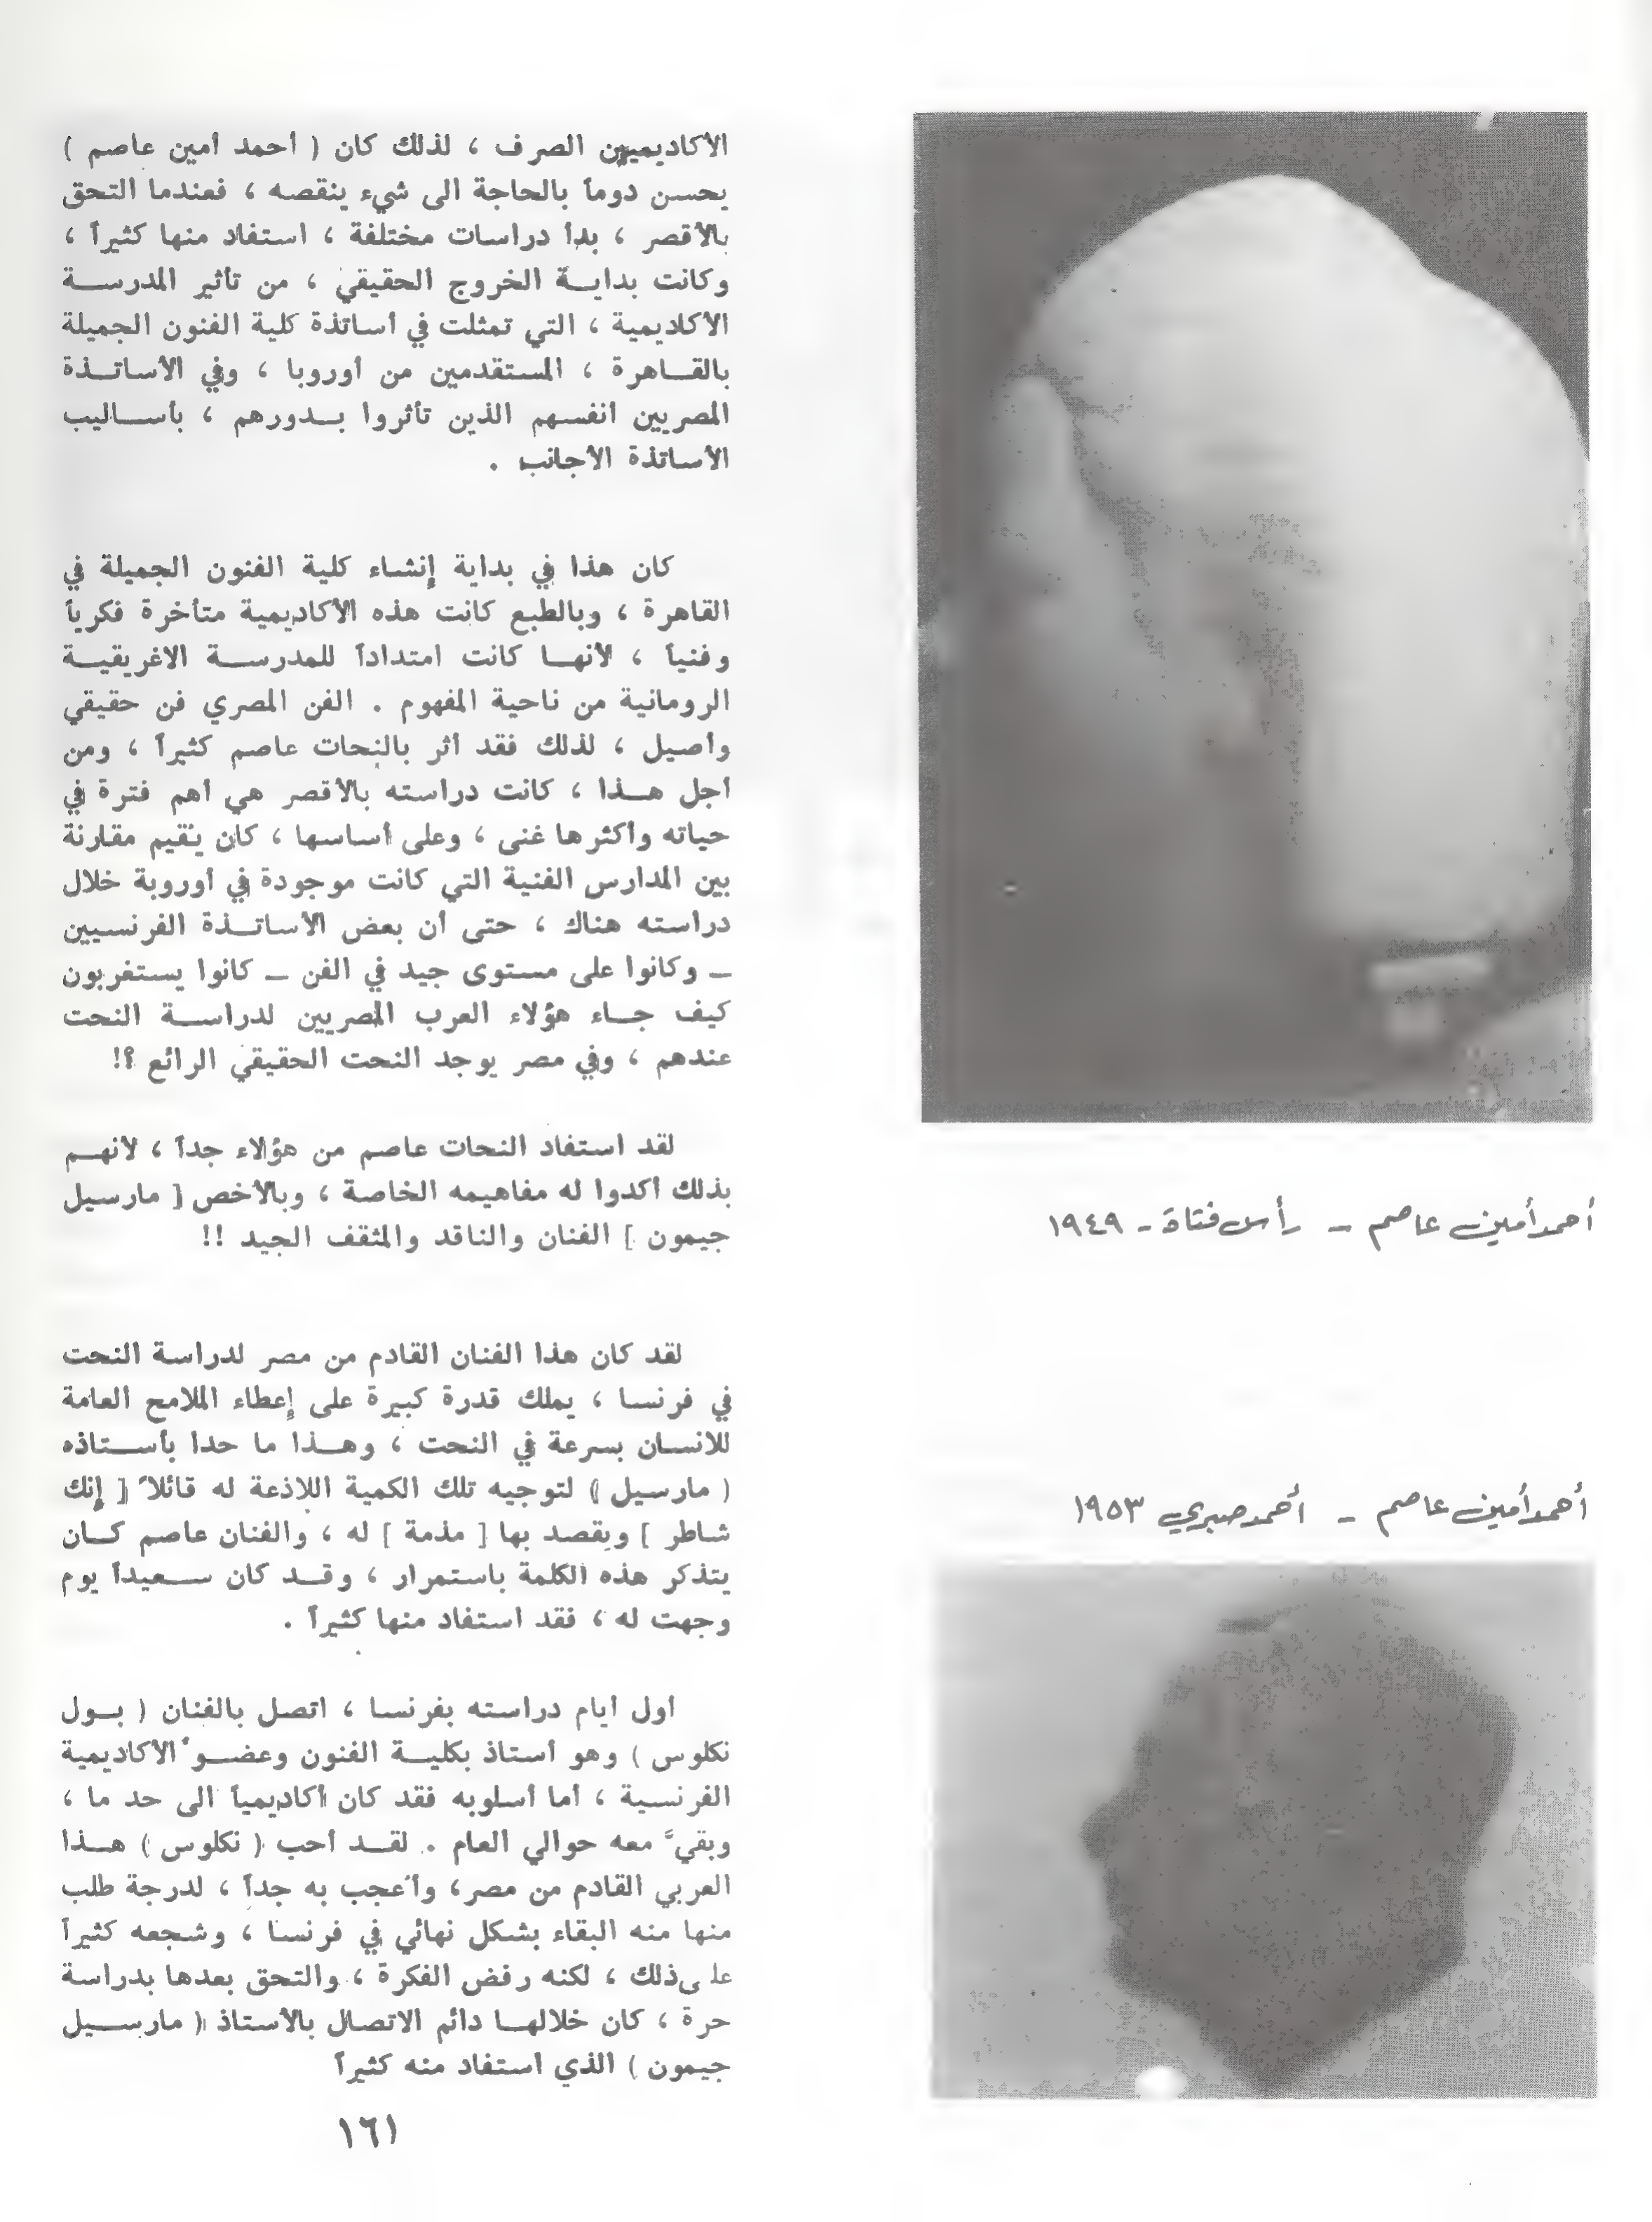 أحمد أمين عاصم - رأس فتاة - ١٩٤٩
أحمد أمين عاصم - أحمد صبري ١٩٥٣
الأكاديميين الصرف ، لذلك كان ( أحمد أمين عاصم )
يحسن دوماً بالحاجة الى شيء ينقصه ، فعندما التحق
بالأقصر ، بدأ دراسات مختلفة ، استفاد منها كثيراً ،
وكانت بدايـــة الخروج الحقيقي ، من تأثير المدرســـة
الأكاديمية ، التي تمثلت في أساتذة كلية الفنون الجميلة
بالقـــاهرة ، المستقدمين من أوروبا ، وفي الأساتـــذة
المصريين أنفسهم الذين تأثروا بـــدورهم ، بأســـاليب
الأساتذة الأجانب .
كان هذا في بداية إنشاء كلية الفنون الجميلة في
القاهرة ، وبالطبع كانت هذه الأكاديمية متأخرة فكرياً
وفنياً ، لأنهـــا كانت امتداداً للمدرســـة الاغريقيـــة
الرومانية من ناحية المفهوم . الفن المصري فن حقيقي
وأصيل ، لذلك فقد أثر بالنحات عاصم كثيراً ، ومن
أجل هـــذا ، كانت دراسته بالأقصر هي أهم فترة في
حياته وأكثرها غنى ، وعلى أساسها ، كان يقيم مقارنة
بين المدارس الفنية التي كانت موجودة في أوروبة خلال
دراسته هناك ، حتى أن بعض الأساتـــذة الفرنسيين
ـ وكانوا على مستوى جيد في الفن ـ كانوا يستغربون
كيف جـــاء هؤلاء العرب المصريين لدراســـة النحت
عندهم ، وفي مصر يوجد النحت الحقيقي الرائع ؟!
لقد استفاد النحات عاصم من هؤلاء جداً ، لأنهـــم
بذلك أكدوا له مفاهيمه الخاصة ، وبالأخص [ مارسيل
جيمون ] الفنان والناقد والمثقف الجيد !!
لقد كان هذا الفنان القادم من مصر لدراسة النحت
في فرنسا ، يملك قدرة كبيرة على إعطاء الملامح العامة
للانسان بسرعة في النحت ، وهـــذا ما حدا بأســـتاذه
( مارسيل ) لتوجيه تلك الكمية اللاذعة له قائلاً [ إنك
شاطر ] ويقصد بها [ مذمة ] له ، والفنان عاصم كـــان
يتذكر هذه الكلمة باستمرار ، وقـــد كان ســـعيداً يوم
وجهت له ، فقد استفاد منها كثيراً .
أول أيام دراسته بفرنسا ، اتصل بالفنان ( بـــول
نكلوس ) وهو أستاذ بكليـــة الفنون وعضـــو الأكاديمية
الفرنسية ، أما أسلوبه فقد كان أكاديمياً الى حد ما ،
وبقيَ معه حوالي العام . لقـــد أحب ( نكلوس ) هـــذا
العربي القادم من مصر، وأعجب به جداً ، لدرجة طلب
منها منه البقاء بشكل نهائي في فرنسا ، وشجعه كثيراً
على ذلك ، لكنه رفض الفكرة ، والتحق بعدها بدراسة
حرة ، كان خلالهـــا دائم الاتصال بالأستاذ ( مارســـيل
جيمون ) الذي استفاد منه كثيراً
١٦١